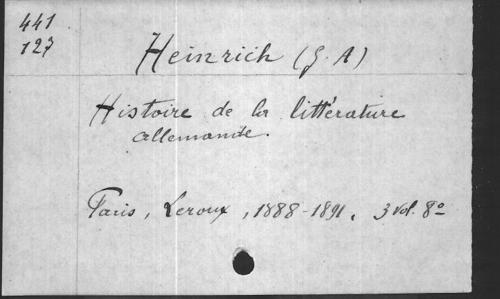 441
127
Heinrich (G. A)
Histoire de la littérature
allemande.
Paris, Leroux, 1888-1891. 3 vol. 8º